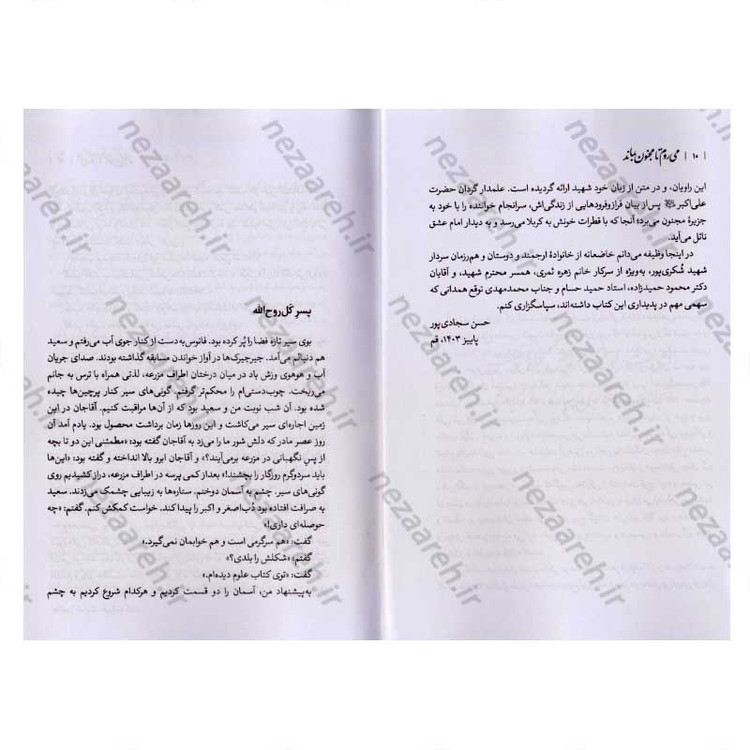 | ۱۰ | می‌روم تا مجنون بماند
این راویان، و در متن از زبان خود شهید ارائه گردیده است. علمدار گردان حضرت
علی‌اکبر پس‌از بیان فرازوفرودهایی از زندگی‌اش، سرانجام خواننده را با خود به
جزیرهٔ مجنون می‌برد؛ آنجا که با قطرات خونش به کربلا می‌رسد و به دیدار امام عشق
نائل می‌آید.
در اینجا وظیفه می‌دانم خاضعانه از خانوادهٔ ارجمند و دوستان و هم‌رزمان سردار
شهید شکری‌پور، به‌ویژه از سرکار خانم زهره ثمری، همسر محترم شهید، و آقایان
دکتر محمود حمیدزاده، استاد حمید حسام و جناب محمدمهدی توقع همدانی که
سهمی مهم در پدیداری این کتاب داشته‌اند، سپاسگزاری کنم.
حسن سجادی‌پور
پاییز ۱۴۰۳، قم
پسرِ کَل روح‌الله
بوی سیر تازه فضا را پُر کرده بود. فانوس‌به‌دست از کنار جوی آب می‌رفتم و سعید
هم دنبالم می‌آمد. جیرجیرک‌ها در آواز خواندن مسابقه گذاشته بودند. صدای جریان
آب و هوهوی وزش باد در میان درختان اطراف مزرعه، لذتی همراه با ترس به جانم
می‌ریخت. چوب‌دستی‌ام را محکم‌تر گرفتم. گونی‌های سیر کنار پرچین‌ها چیده
شده بود. آن شب نوبت من و سعید بود که از آن‌ها مراقبت کنیم. آقاجان در این
زمین اجاره‌ای سیر می‌کاشت و این روزها زمان برداشت محصول بود. یادم آمد آن
روز عصر مادر که دلش شور ما را می‌زد به آقاجان گفته بود: «مطمئنی این دو تا بچه
از پسِ نگهبانی در مزرعه برمی‌آیند؟» و آقاجان ابرو بالا انداخته و گفته بود: «این‌ها
باید سردوگرم روزگار را بچشند!» بعداز کمی پرسه در اطراف مزرعه، دراز کشیدیم روی
گونی‌های سیر. چشم به آسمان دوختم. ستاره‌ها به زیبایی چشمک می‌زدند. سعید
به صرافت افتاده بود دُب‌اصغر و اکبر را پیدا کند. خواست کمکش کنم. گفتم: «چه
حوصله‌ای داری!»
گفت: «هم سرگرمی است و هم خوابمان نمی‌گیرد.»
گفتم: «شکلش را بلدی؟»
گفت: «توی کتاب علوم دیده‌ام.»
به‌پیشنهاد من، آسمان را دو قسمت کردیم و هرکدام شروع کردیم به چشم
nezaareh.ir
nezaareh.ir
nezaareh.ir
nezaareh.ir
nezaareh.ir
nezaareh.ir
nezaareh.ir
nezaareh.ir